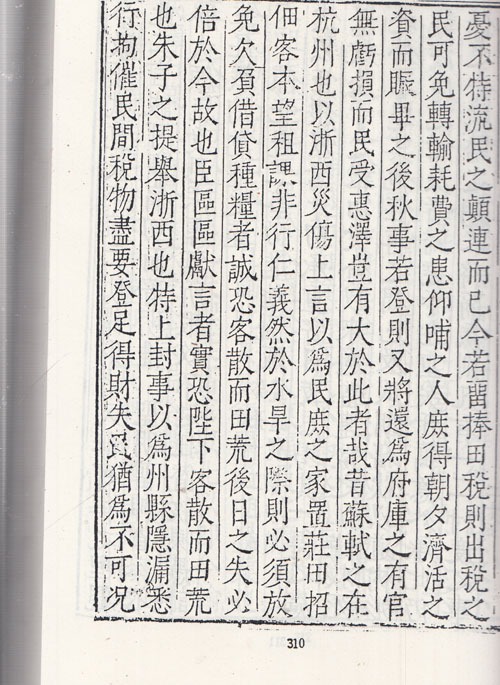 憂不特流民之顛連而已今若畱捧田稅則出稅之
民可免轉輸耗費之患仰哺之人庶得朝夕濟活之
資而賑畢之後秋事若登則又將還爲府庫之有官
無虧損而民受惠澤豈有大於此者哉昔蘇軾之在
杭州也以浙西災傷上言以爲民庶之家置莊田招
佃客本望租課非行仁義然於水旱之際則必須放
免欠負借貸種糧者誠恐客散而田荒後日之失必
倍於今故也臣區區獻言者實恐陛下客散而田荒
也朱子之提舉浙西也特上封事以爲州縣隱漏悉
行拘催民間稅物盡要登足得財失民猶爲不可况
310